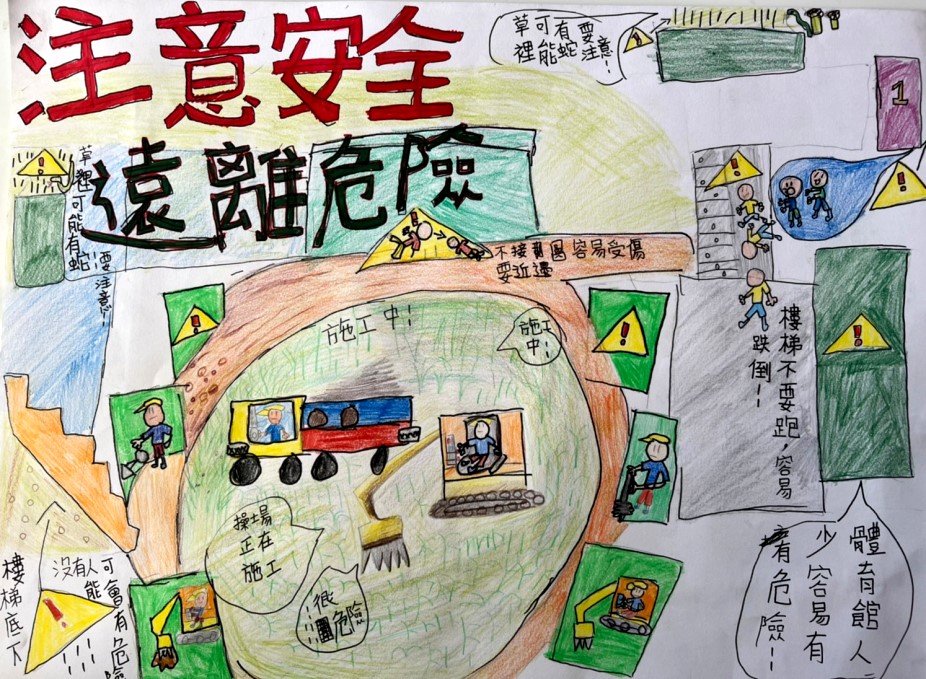 注意安全
遠離危險
草可有要
裡能蛇注意!!
1
草裡可能有蛇
要注意!!
不接 圍容易受傷
要近邊
施工中!!
施工
中!!
樓梯不要跑,容易
跌倒!!
操場
正在
施工
很危險
!!!
體育館人
少容易有
有危險!!
樓梯底下
沒有人可
能會有危險
!!!